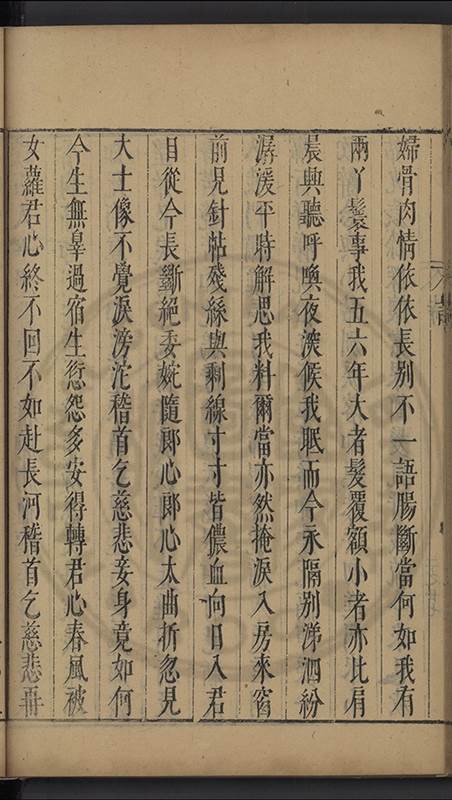 婦骨肉情依依長别不一語腸斷當何如我有
兩丫鬟事我五六年大者髮覆額小者亦比肩
晨興聽呼喚夜深候我眠而今永隔别涕泗紛
潺湲平時解思我料爾當亦然掩淚入房來窗
前見針帖殘絲與剩線寸寸皆儂血向日入君
目從今長斷絕委婉隨郎心郎心太曲折忽見
大士像不覺淚滂沱稽首乞慈悲妾身竟如何
今生無辠過宿生愆怨多安得轉君心春風被
女蘿君心終不回不如赴長河稽首乞慈悲再